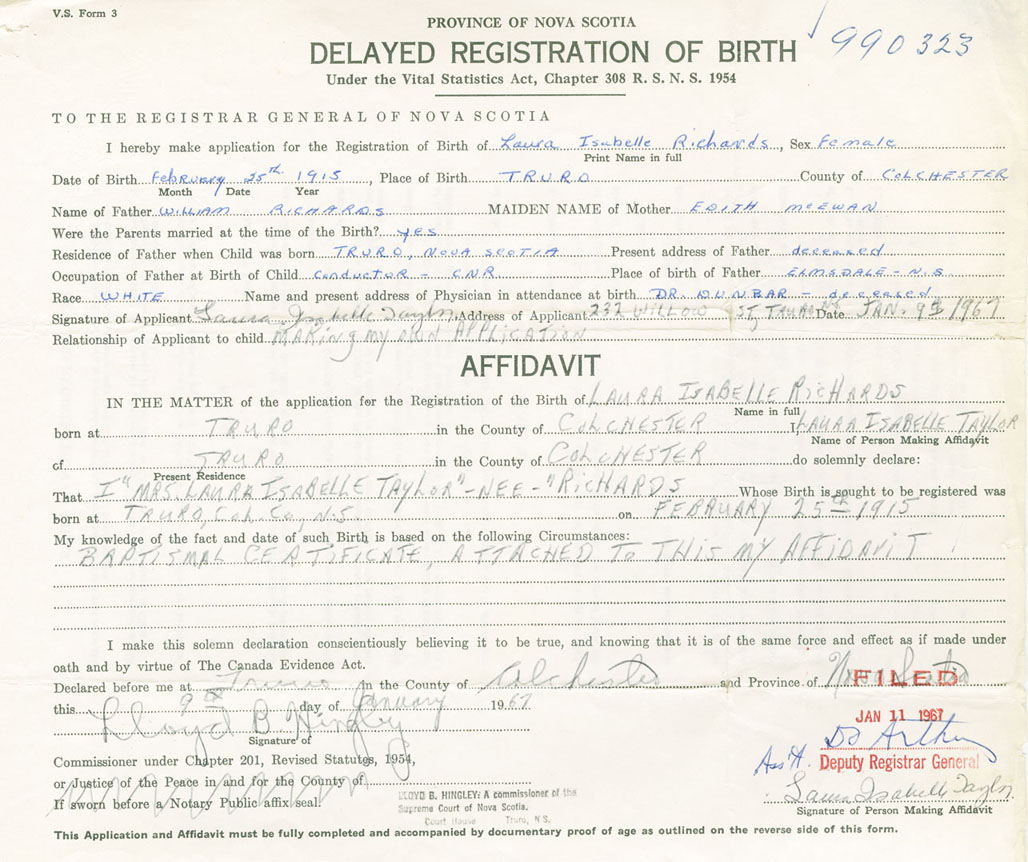 V.S. Form 3
PROVINCE OF NOVA SCOTIA
DELAYED REGISTRATION OF BIRTH
990323
Under the Vital Statistics Act, Chapter 308 R. S. N. S. 1954
TO THE REGISTRAR GENERAL OF NOVA SCOTIA
I hereby make application for the Registration of Birth of Laura Isabelle Richards, Sex Female
Print Name in full
Date of Birth February 25th 1915, Place of Birth TRURO County of COLCHESTER
Month Date Year
Name of Father WILLIAM RICHARDS MAIDEN NAME of Mother EDITH McEWAN
Were the Parents married at the time of the Birth? yes
Residence of Father when Child was born TRURO, NOVA SCOTIA Present address of Father deceased
Occupation of Father at Birth of Child Conductor - CNR Place of birth of Father ELMSDALE - N.S
Race WHITE Name and present address of Physician in attendance at birth DR. DUNBAR - deceased
Signature of Applicant Laura Isabelle Taylor Address of Applicant 232 WILLOW ST, TRURO NS Date JAN. 9th 1967
Relationship of Applicant to child MAKING MY OWN APPLICATION
AFFIDAVIT
IN THE MATTER of the application for the Registration of the Birth of LAURA ISABELLE RICHARDS
Name in full
born at TRURO in the County of COLCHESTER I, LAURA ISABELLE TAYLOR
Name of Person Making Affidavit
of TRURO in the County of COLCHESTER do solemnly declare:
Present Residence
That I "MRS. LAURA ISABELLE TAYLOR" - NEE - "RICHARDS Whose Birth is sought to be registered was
born at TRURO, Col. Co, N.S. on FEBRUARY 25th 1915
My knowledge of the fact and date of such Birth is based on the following Circumstances:
BAPTISMAL CERTIFICATE, ATTACHED TO THIS MY AFFIDAVIT
I make this solemn declaration conscientiously believing it to be true, and knowing that it is of the same force and effect as if made under
oath and by virtue of The Canada Evidence Act.
Declared before me at Truro in the County of Colchester and Province of Nova Scotia
FILED
this 9th day of January 1967
JAN 11 1967
Lloyd B Hingley
Signature of
Ass't. Deputy Registrar General
Commissioner under Chapter 201, Revised Statutes, 1954,
or Justice of the Peace in and for the County of
Laura Isabelle Taylor
If sworn before a Notary Public affix seal.
LLOYD B. HINGLEY: A commissioner of the
Supreme Court of Nova Scotia.
Court House Truro, N.S.
Signature of Person Making Affidavit
This Application and Affidavit must be fully completed and accompanied by documentary proof of age as outlined on the reverse side of this form.